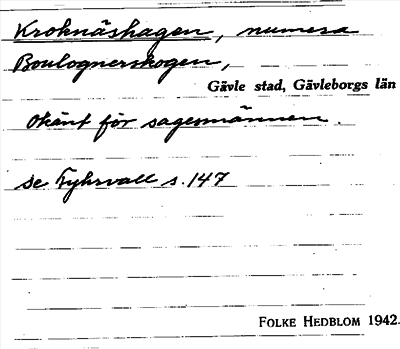 Kroknäshagen, numera
Boulognerskogen,
Gävle stad, Gävleborgs län
okänt för sagesmännen.
se Fyhrvall s. 147
FOLKE HEDBLOM 1942.